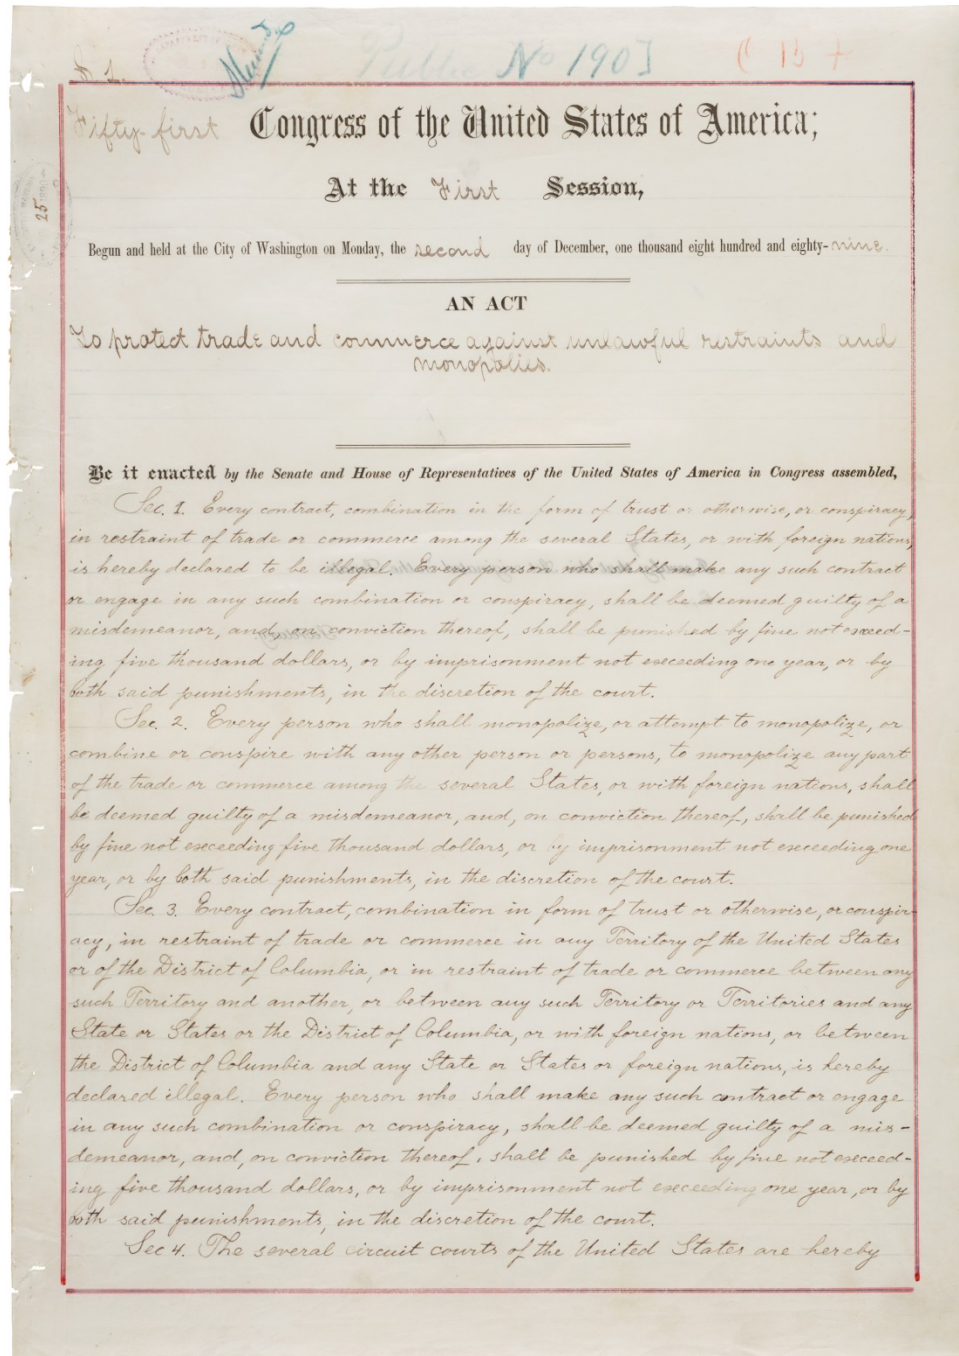 S. 1.
Public No 190]
Fifty-first Congress of the United States of America;
At the First Session,
25
Begun and held at the City of Washington on Monday, the second day of December, one thousand eight hundred and eighty-nine.
AN ACT
To protect trade and commerce against unlawful restraints and
monopolies.
Be it enacted by the Senate and House of Representatives of the United States of America in Congress assembled,
Sec. 1. Every contract, combination in the form of trust or otherwise, or conspiracy,
in restraint of trade or commerce among the several States, or with foreign nations,
is hereby declared to be illegal. Every person who shall make any such contract
or engage in any such combination or conspiracy, shall be deemed guilty of a
misdemeanor, and, on conviction thereof, shall be punished by fine not exceed-
ing five thousand dollars, or by imprisonment not exceeding one year, or by
both said punishments, in the discretion of the court.
Sec. 2. Every person who shall monopolize, or attempt to monopolize, or
combine or conspire with any other person or persons, to monopolize any part
of the trade or commerce among the several States, or with foreign nations, shall
be deemed guilty of a misdemeanor, and, on conviction thereof, shall be punished
by fine not exceeding five thousand dollars, or by imprisonment not exceeding one
year, or by both said punishments, in the discretion of the court.
Sec. 3. Every contract, combination in form of trust or otherwise, or conspir-
acy, in restraint of trade or commerce in any Territory of the United States
or of the District of Columbia, or in restraint of trade or commerce between any
such Territory and another, or between any such Territory or Territories and any
State or States or the District of Columbia, or with foreign nations, or between
the District of Columbia and any State or States or foreign nations, is hereby
declared illegal. Every person who shall make any such contract or engage
in any such combination or conspiracy, shall be deemed guilty of a mis-
demeanor, and, on conviction thereof, shall be punished by fine not exceed-
ing five thousand dollars, or by imprisonment not exceeding one year, or by
both said punishments, in the discretion of the court.
Sec 4. The several circuit courts of the United States are hereby